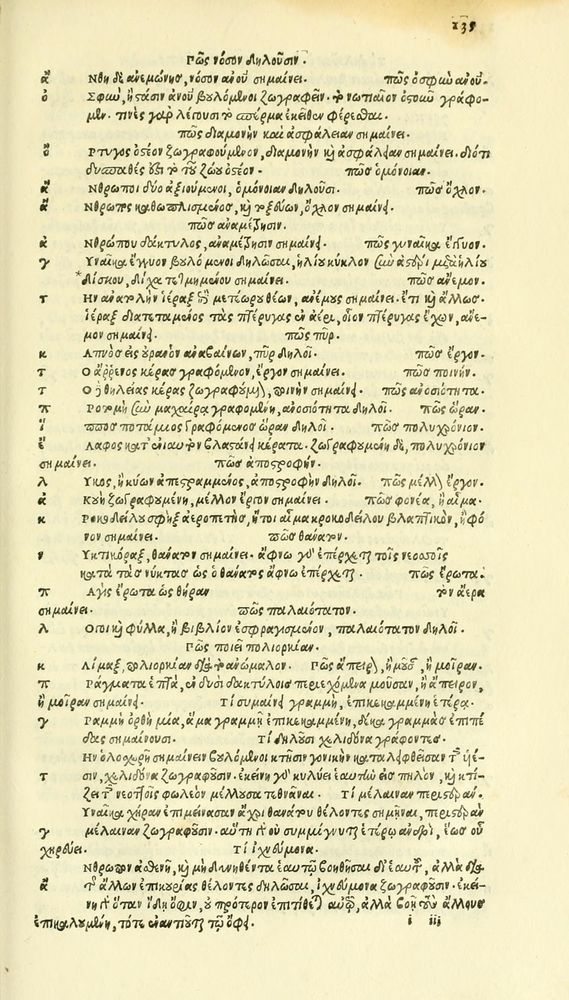 135
Πῶς νόσον δηλοῦσιν.
ἄ Νθη δὲ ἀνεμώνης, νόσον ἀνου σημαίνει. πῶς ὀσφιῶ ἀνου.
ὀ Σφιῶ, ἢ στάσιν ἀνου βουλόμενοι ζωγραφεῖν τὸ νωτιαῖον ὀστοιῶ γράφο-
μεν. τινὲς γὰρ λέγουσι τὸ σπέρμα ἐκεῖθεν φέρεσθαι.
πῶς διαμονὴν καὶ ἀσφάλειαν σημαίνει.
ὄ Ρτυγος ὀστέον ζωγραφούμενον, διαμονὴν καὶ ἀσφάλειαν σημαίνει. διότι
δυσπαθές ἐστι τὸ τοῦ ζώου ὀστέον. πῶς ὁμόνοιαν.
ἄ Νθρωποι δύο δεξιούμενοι, ὁμόνοιαν δηλοῦσι. πῶς ὄχλον.
ἄ Νθρωπος καθωπλισμένος, καὶ τοξεύων, ὄχλον σημαίνει.
πῶς ἀναμέτρησιν.
ἀ Νθρώπου δάκτυλος, ἀναμέτρησιν σημαίνει. πῶς γυναῖκα ἔγκυον.
γ Υναῖκα ἔγκυον βουλόμενοι δηλῶσαι, ἡλίου κύκλον σὺν ἀστέρι μετὰ ἡλίου
*δίσκου, δίχα τετμημένου σημαίνει. πῶς ἄνεμον.
τ Ην ἀνατολὴν ἱέραξ πρὸς μετέωρος θέων, ἀνέμους σημαίνει. ἔτι καὶ ἄλλως
ἱέραξ διατεταμένος τὰς πτέρυγας ἐν ἀέρι, οἷον πτέρυγας ἔχων, ἄνε-
μον σημαίνει. πῶς πῦρ.
κ Απνὸς εἰς οὐρανὸν ἀναβαίνων, πῦρ δηλοῖ. πῶς ἔργον.
τ Ο ἄρρενος κέρας γραφόμενον, ἔργον σημαίνει. πῶς ποινήν.
τ Ο δὲ θηλείας κέρας ζωγραφούμενον, ποινὴν σημαίνει. πῶς ἀνοσιότητα.
π Ροτομὴ σὺν μαχαίρᾳ γραφομένη, ἀνοσιότητα δηλοῖ. πῶς ὥραν.
ἵ ππος ποτάμιος γραφόμενος ὥραν δηλοῖ. πῶς πολυχρόνιον.
ἔ Λαφος κατ' ἐνιαυτὸν βλαστάνει κέρατα. ζωγραφουμένη δὲ, πολυχρόνιον
σημαίνει. πῶς ἀποστροφήν.
λ Υκος, ἢ κύων ἀπεστραμμένος, ἀποστροφὴν δηλοῖ. πῶς μέλλον ἔργον.
ἀ Κοὴ ζωγραφουμένη, μέλλον ἔργον σημαίνει. πῶς φονέα, ἢ αἷμα.
κ Ροκοδείλου σφὴξ ἀεροπετὴς, ἤτοι αἷμα κροκοδείλου βλαπτικὸν, ἢ φό
νον σημαίνει. πῶς θάνατον.
ν Υκτικόραξ, θάνατον σημαίνει. ἄφνω γὰρ ἐπέρχεται τοῖς νεοσσοῖς
κατὰ τὰς νύκτας ὡς ὁ θάνατος ἄφνω ἐπέρχεται. πῶς ἔρωτα.
π Αγὶς ἔρωτα ὡς θήραν τὸν ἀέρα
σημαίνει. πῶς παλαιότατον.
λ Ογοι καὶ φύλλα, ἢ βιβλίον ἐσφραγισμένον, παλαιότατον δηλοῖ.
Πῶς ποιεῖ πολιορκίαν.
κ Λίμαξ, πολιορκίαν διὰ τὸ ἀνώμαλον. Πῶς ἄπειρον, ἢ μοῦσαν, ἢ μοῖραν.
π Ράγματα ἑπτὰ, ἐν δυσὶ δακτύλοις περιεχόμενα μοῦσαν, ἢ ἄπειρον,
ἢ μοῖραν σημαίνει. Τί συμαίνει γραμμὴ, ἐπικεκαμμένη ἑτέρα.
γ Ραμμὴ ὀρθὴ μία, ἅμα γραμμῇ ἐπικεκαμμένῃ, δέκα γραμμὰς ἐπιπέ
δας σημαίνουσι. Τί δηλοῦσι χελιδόνα γράφοντες.
Ην ὁλοχερῆ σημαίνειν βουλόμενοι κτῆσιν γονικὴν καταλειφθεῖσαν τοῖς υἱέ-
τ σιν, χελιδόνα ζωγραφοῦσιν. ἐκείνη γὰρ κυλύει ἑαυτὼ εἰς πηλὸν, καὶ κτί-
ζει τοῖς νεοττοῖς φωλεὸν μέλλουσα τεθνάναι. Τί μέλαιναν περιστεράν.
Υναῖκα χήραν ἐπιμείνασαν ἄχρι θανάτου θέλοντες σημῆναι, περιστερὰν
γ μέλαιναν ζωγραφοῦσιν. αὕτη γὰρ οὐ συμμίγνυται ἑτέρῳ ἀνδρὶ, ἕως οὗ
χηρεύει. Τί ἰχνεύμονα.
Νθρωπον ἀσθενῆ, καὶ μὴ δυνηθέντα ἑαυτῷ βοηθῆσαι δι' ἑαυτοῦ, ἀλλὰ διὰ
ἄ τῆς ἄλλων ἐπικουρίας θέλοντες δηλῶσαι, ἰχνεύμονα ζωγραφοῦσιν. ἐκεί-
νη γὰρ ὅταν ἴδῃ ὄφιν, οὐ πρότερον ἐπιτίθεται αὐτῷ, ἀλλὰ βοῇ τοὺς ἄλλους
ἐπικαλουμένη, τότε ἐναντιοῦται τῷ ὄφει. i iii